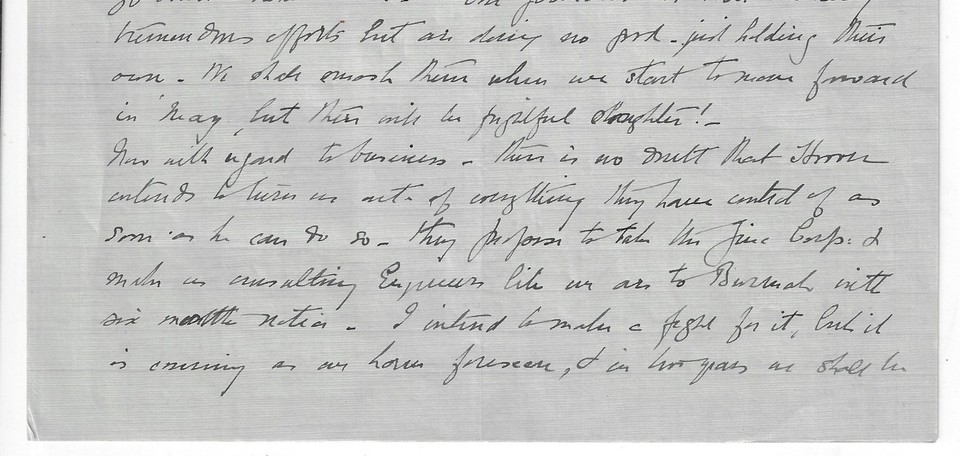 tremendous efforts but are doing no good - just holding their
own - We shall smash them when we start to move forward
in May, but there will be frightful slaughter! -
Now with regard to business - there is no doubt that Hoover
intends to turn us out of everything they have control of as
soon as he can do so - they propose to take the Zinc Corp: &
make us consulting Engineers like we are to Burmah with
six months notice - I intend to make a fight for it, but it
is coming as we have foreseen, & in two years we shall be